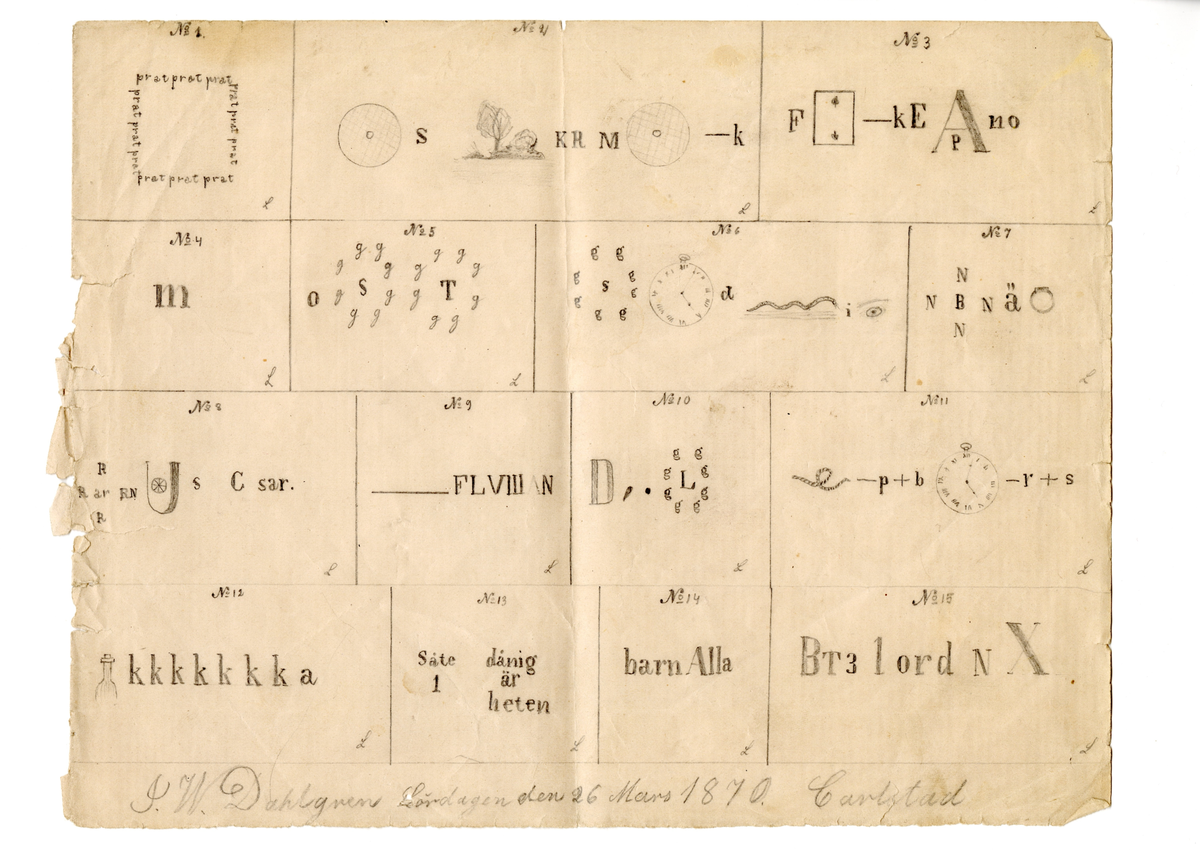 № 1.
prat prat prat
prat prat prat
prat prat prat
prat prat prat
L
№ 2
S KR M —k
L
№ 3
F —kE A P no
L
№ 4
m
L
№ 5
g g g g g g g g
o S T
g g g g g g g g
L
№ 6
g g
g s g
g g
g g
d i
L
№ 7
N
N B N ä O
N
L
№ 8
R
R är RN U s C sar.
R
L
№ 9
FLVIIIAN
L
№ 10
g g
D , . g L g
g g
g g
L
№ 11
—p+b —r+s
L
№ 12
kkkkkkka
L
№ 13
Såte dånig
1 är
heten
L
№ 14
barn Alla
L
№ 15
BT3 1 ord N X
L
J. W. Dahlgren Lördagen den 26 Mars 1870. Carlstad